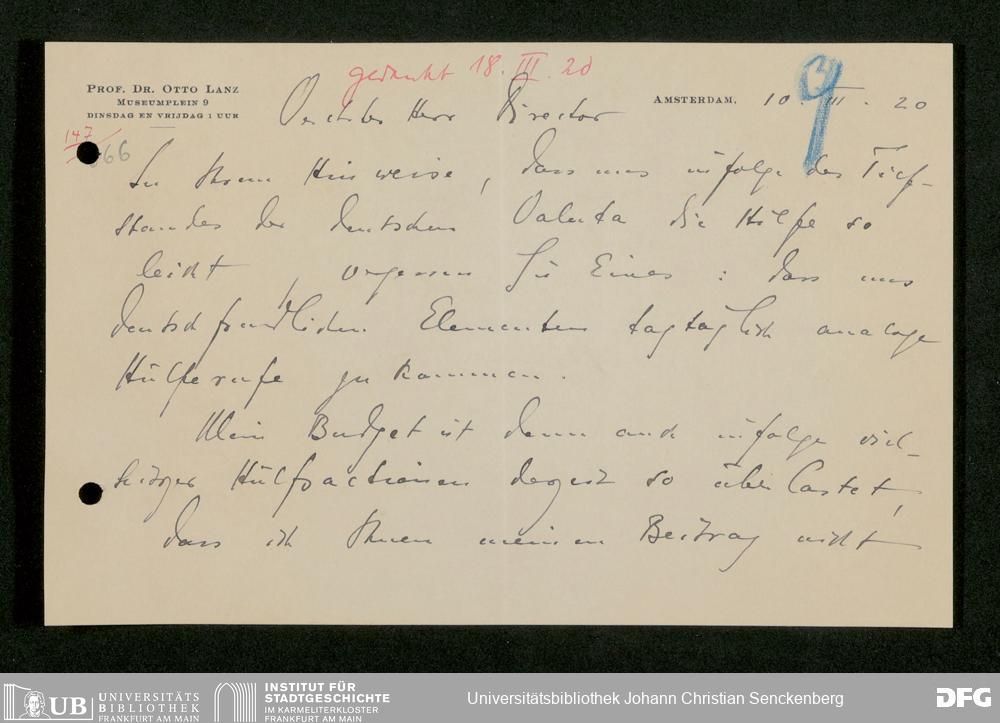 gedankt 18. III. 20
PROF. DR. OTTO LANZ
MUSEUMPLEIN 9
DINSDAG EN VRIJDAG 1 UUR
AMSTERDAM, 10. III. 20
9
147
66
Verehrter Herr Director
In Ihrem Hinweise, dass uns infolge des Tief-
standes der deutschen Valuta die Hülfe so
leicht, vergessen Sie Eines: dass uns
deutschfreundlichen Elementen tagtäglich analoge
Hülferufe zukommen.
Mein Budget ist denn auch infolge viel-
seitiger Hülfsactionen derzeit so überlastet,
dass ich Ihnen meinen Beitrag nicht
UB UNIVERSITÄTS
BIBLIOTHEK
FRANKFURT AM MAIN
INSTITUT FÜR
STADTGESCHICHTE
IM KARMELITERKLOSTER
FRANKFURT AM MAIN
Universitätsbibliothek Johann Christian Senckenberg
DFG